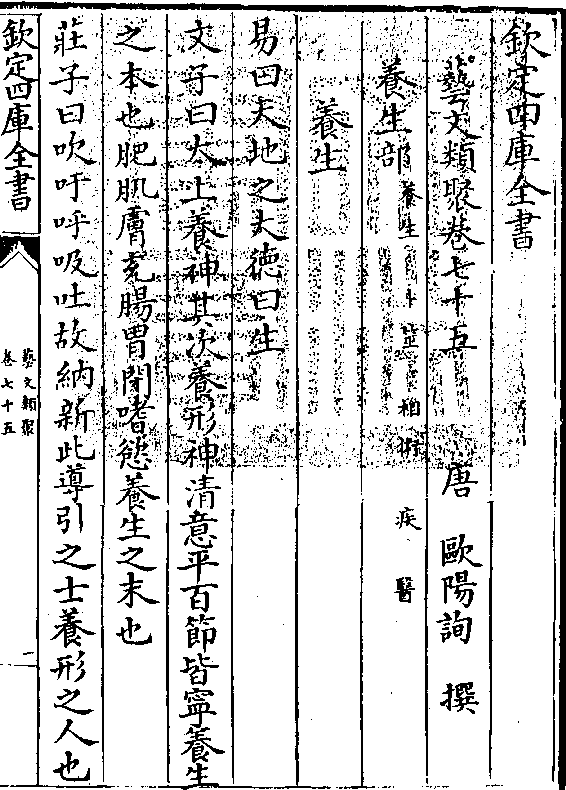 欽定四庫全書
藝文類聚卷七十五
唐 歐陽詢 撰
養生部 養生 卜筮 相術 疾 醫
養生
易曰天地之大德曰生
文子曰太上養神其次養形神清意平百節皆寧養生
之本也肥肌膚充腸胃閉嗜慾養生之末也
莊子曰吹吁呼吸吐故納新此導引之士養形之人也
欽定四庫全書
藝文類聚
卷七十五
一